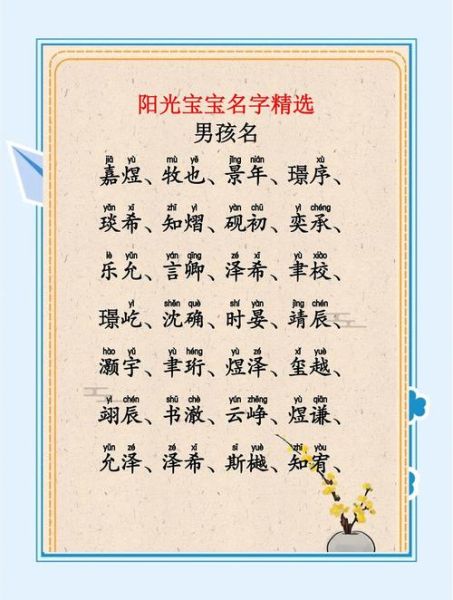 阳光宝宝名字精选
男孩名
jiā yù mù yě jǐng nián xù
嘉煜、牧也、景年、璟序、
yǎn xī zhī yì yàn chū yì chéng
琰希、知熠、砚初、奕承、
lè yǔn yán qīng zé xī yù xiào
乐允、言卿、泽希、聿校、
yǐ shěn què shí yàn jìng chén
璟屹、沈确、时晏、靖辰、
hào yǔ yù héng yù zé xǐ yuè
灏宇、聿珩、煜泽、玺越、
yì chén yún zhēng yù qiān
翊辰、书澈、云峥、煜谦、
yǔn zé zé xī sī yuè zhī yòu
允泽、泽希、斯樾、知宥、